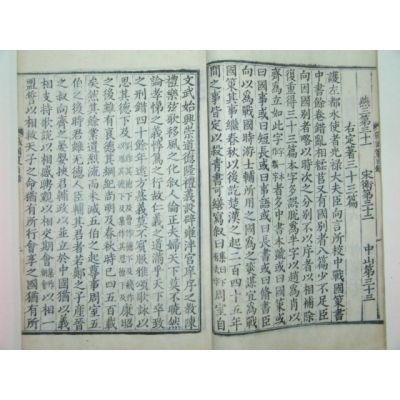 燕三第三十一　宋衛第三十二　中山第三十三
右定著三十三篇
護左都水使者光祿大夫臣向言所校中戰國策書
中書餘卷錯亂相糅莒又有國别者八篇少不足臣
向因國别者略以時次之分别不以序者以相補除
復重得三十三篇本字多誤脫為半字以趙為肖以
齊為立如此字者多中書本號或曰國策或
曰國事或曰短長或曰事語或曰長書或曰脩書臣
向以為戰國時游士輔所用之國為之筴謀宜為戰
國策其事繼春秋以後訖楚漢之起二百四十五年
間之事皆定以殺青書可繕寫叙曰周室自
文武始興崇道德隆禮義設辟雍泮宮庠序之教陳
禮樂弦歌移風之化叙人倫正夫婦天下莫不曉然
論孝悌之義惇篤之行故仁義之道滿乎天下卒致
之刑錯四十餘年遠方慕義莫不賓服雅頌歌詠以
思其德下及康昭
之後雖有衰德其綱紀尚明及春秋時已四五百載
矣然其餘業遺烈流而未滅五伯之起尊事周室五
伯之後時君雖無德人臣輔其君者若鄭之子產晉
之叔向齊之晏嬰挾君輔政以並立於中國猶以義
相支持歌說以相感聘覲以相交期會以相一
盟誓以相救天子之命猶有所行會享之國猶有所